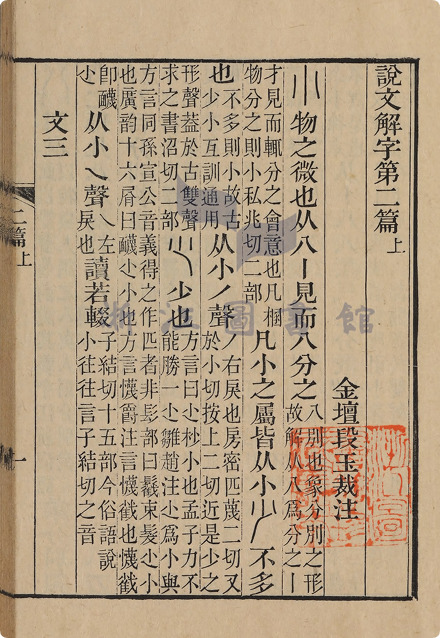 說文解字第二篇上
金壇段玉裁注
小物之微也从八丨見而八分之八別也象分別之形故解从八爲分之丨
才見而輒分之會意也凡梱物分之則小私兆切二部凡小之屬皆从小少不多
也不多則小故古少小互訓通用从小丿聲丿右戾也房密匹蔑二切又於小切按上二切近是少之
形聲葢於古雙聲求之書沼切二部尐少也方言曰尐杪小也孟子力不能勝一尐雛趙注尐爲小與
方言同孫宣公音義得之作匹者非髟部曰束髮尐小也廣韵十六屑曰尐小也方言懱爵注言懱截也懱截
卽尐从小乀聲乀左戾也讀若輟子結切十五部今俗語說小往往言子結切之音
文三
二篇上
一
浙江圖書館